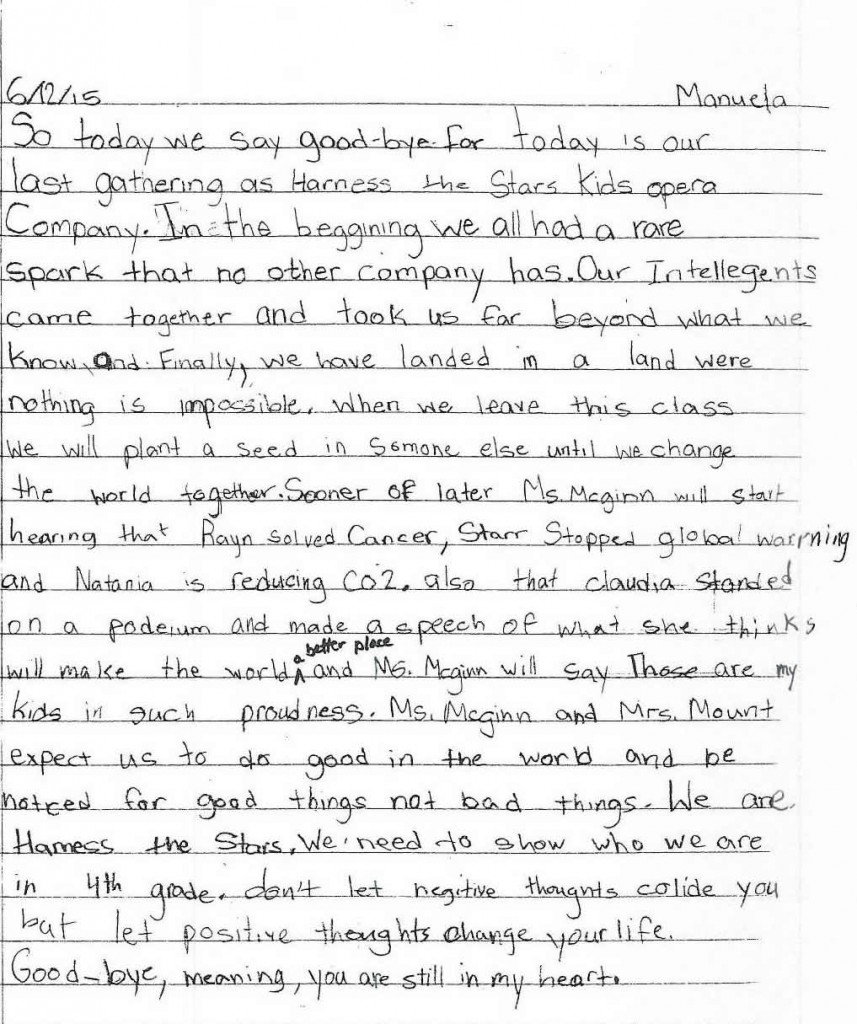 6/12/15 Manuela
So today we say good-bye for today is our
last gathering as Harness the Stars Kids opera
Company. In the beggining we all had a rare
spark that no other company has. Our Intellegents
came together and took us far beyond what we
know, and. Finally, we have landed in a land were
nothing is impossible. When we leave this class
we will plant a seed in Somone else until we change
the world together. Sooner of later Ms. Mcginn will start
hearing that Rayn solved Cancer, Starr Stopped global warrning
and Natania is reducing CO2. also that claudia standed
on a podeium and made a speech of what she thinks
will make the world a better place and Ms. Mcginn will say Those are my
kids in such proudness. Ms. Mcginn and Mrs. Mount
expect us to do good in the world and be
noticed for good things not bad things. We are
Harness the Stars. We need to show who we are
in 4th grade. don't let negitive thoughts colide you
but let positive thoughts change your life.
Good-bye, meaning, you are still in my heart.